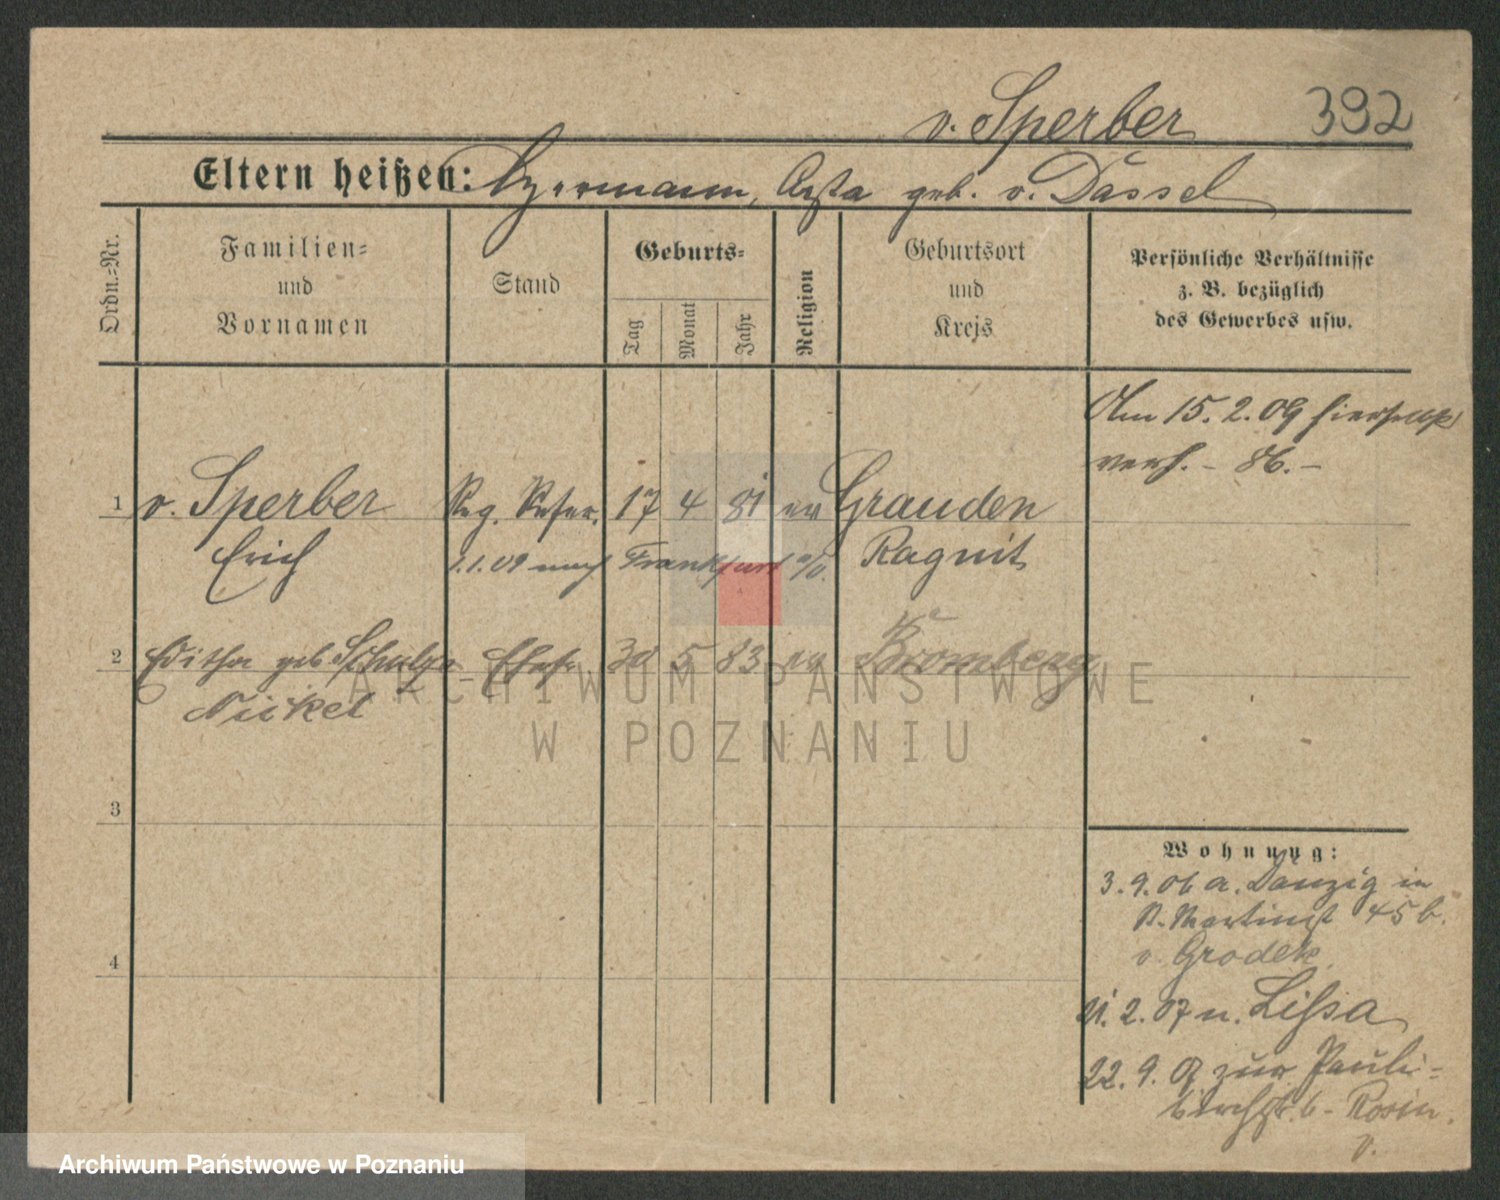 v. Sperber 392
Eltern heißen: Hermann, Agta geb. v. Dassel
Ordn.=Nr.
Familien=
und
Vornamen
Stand
Geburts=
Tag
Monat
Jahr
Religion
Geburtsort
und
Kreis
Persönliche Verhältnisse
z. B. bezüglich
des Gewerbes usw.
Am 15. 2. 09 hierselbst
verh. - 86. -
1 v. Sperber Reg. Refer. 17 4 81 ev Grauden
Erich 1.1.09 nach Frankfurt a/O. Ragnit
2 Editha geb Schulze - Ehefr. 30 5 83 ev Bromberg
Nickel
3
4
Wohnung:
3. 9. 06 a. Danzig in
St. Martinst 45 b.
v. Grodek
21. 2. 07 n. Lissa
22. 9. 07 zur Pauli=
kirchstr. 6 - Rosin.
v.
ARCHIWUM PAŃSTWOWE
W POZNANIU
Archiwum Państwowe w Poznaniu